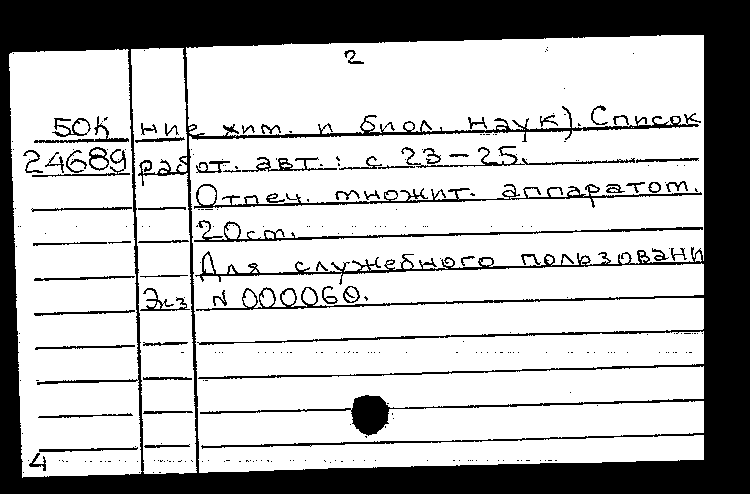 2
БОК ние хим. и биол. наук). Список
24689 работ. авт.: с 23-25.
Отпеч. множит. аппаратом.
20см.
Для служебного пользовани
Экз N 000060.
4